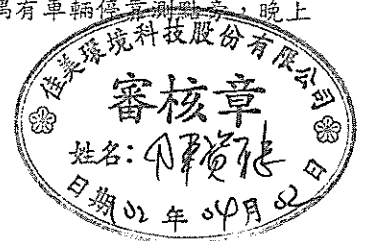 有車輛停靠測點旁,晚上
佳美環境科技股份有限公司
審核章
姓名:
日期 102 年 04 月 02 日